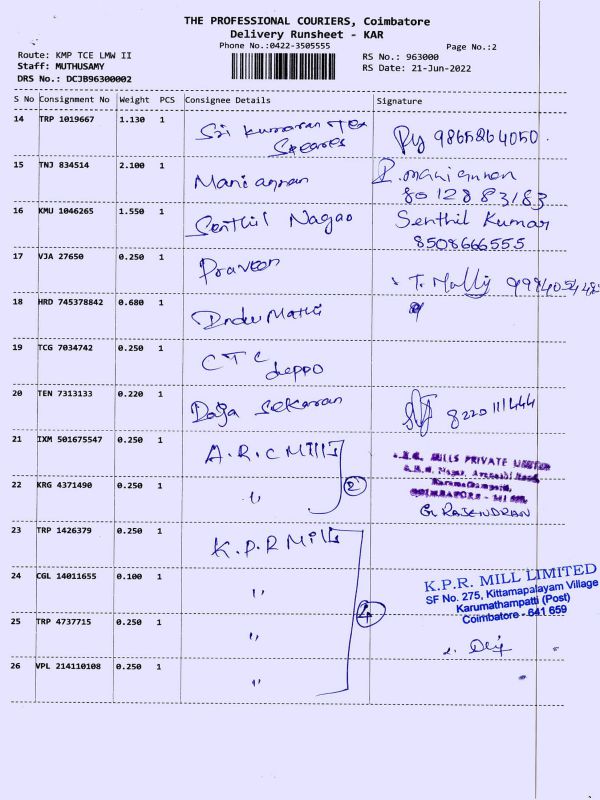 THE PROFESSIONAL COURIERS, Coimbatore
Delivery Runsheet - KAR
Phone No.:0422-3505555
Page No.:2
Route: KMP TCE LMW II
RS No.: 963000
Staff: MUTHUSAMY
RS Date: 21-Jun-2022
DRS No.: DCJB96300002
S No Consignment No Weight PCS Consignee Details Signature
14 TRP 1019667 1.130 1 Sri Kumaran Tex 9865264050
Speares
15 TNJ 834514 2.100 1 Maniannan P. maniannan
8012883183
16 KMU 1046265 1.550 1 Senthil Nagao Senthil Kumar
8508666555
17 VJA 27650 0.250 1 Praveen T. Mally
18 HRD 745378842 0.680 1 Indu Mathi
19 TCG 7034742 0.250 1 CTC
deppo
20 TEN 7313133 0.220 1 Daja Sekaran 8220111444
21 IXM 501675547 0.250 1 A.R.C Mills
MILLS PRIVATE LIMITED
22 KRG 4371490 0.250 1 " 2
COIMBATORE
G. RAJENDRAN
23 TRP 1426379 0.250 1 K.P.R Mills
24 CGL 14011655 0.100 1 "
K.P.R. MILL LIMITED
SF No. 275, Kittampalayam Village
Karumathampatti (Post)
Coimbatore - 641 659
25 TRP 4737715 0.250 1 " 4
26 VPL 214110108 0.250 1 "